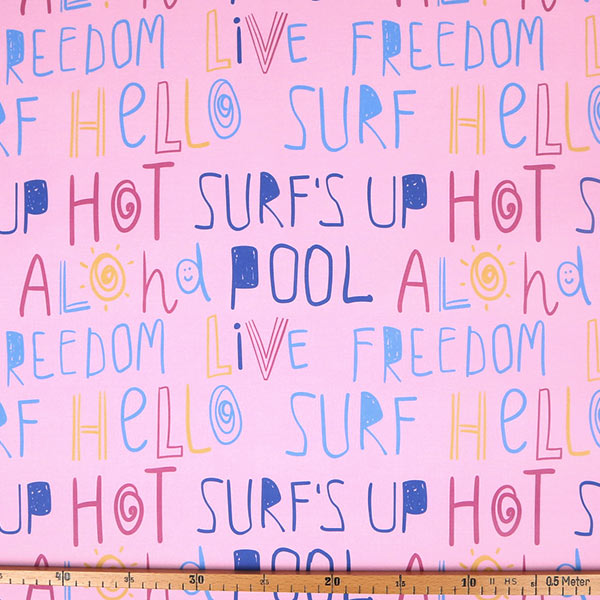 FREEDOM LiVE FREEDOM
SURF HellO SURF HellO
UP HOT SURF'S UP HOT S
ALOha POOL ALOha
FREEDOM LiVE FREEDOM
RF HellO SURF HellO
UP HOT SURF'S UP HOT S
ALOha POOL ALOha
40 35 30 25 20 15 10 II HS 5 0.5 Meter